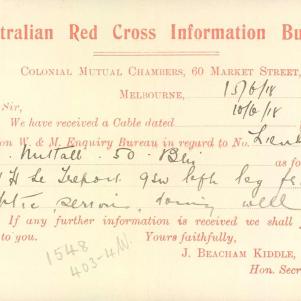 stralian Red Cross Information Bu
COLONIAL MUTUAL CHAMBERS, 60 MARKET STREET,
MELBOURNE, 15/6/18
Sir, 10/6/18
We have received a Cable dated
on W. & M. Enquiry Bureau in regard to No. Lieu
Nuttall 50 Bn as fo
H Le Treport gsw left leg
septic, serious, doing well
If any further information is received we shall
to you. Yours faithfully,
1548
403-4/N. J. BEACHAM KIDDLE,
Hon. Secr